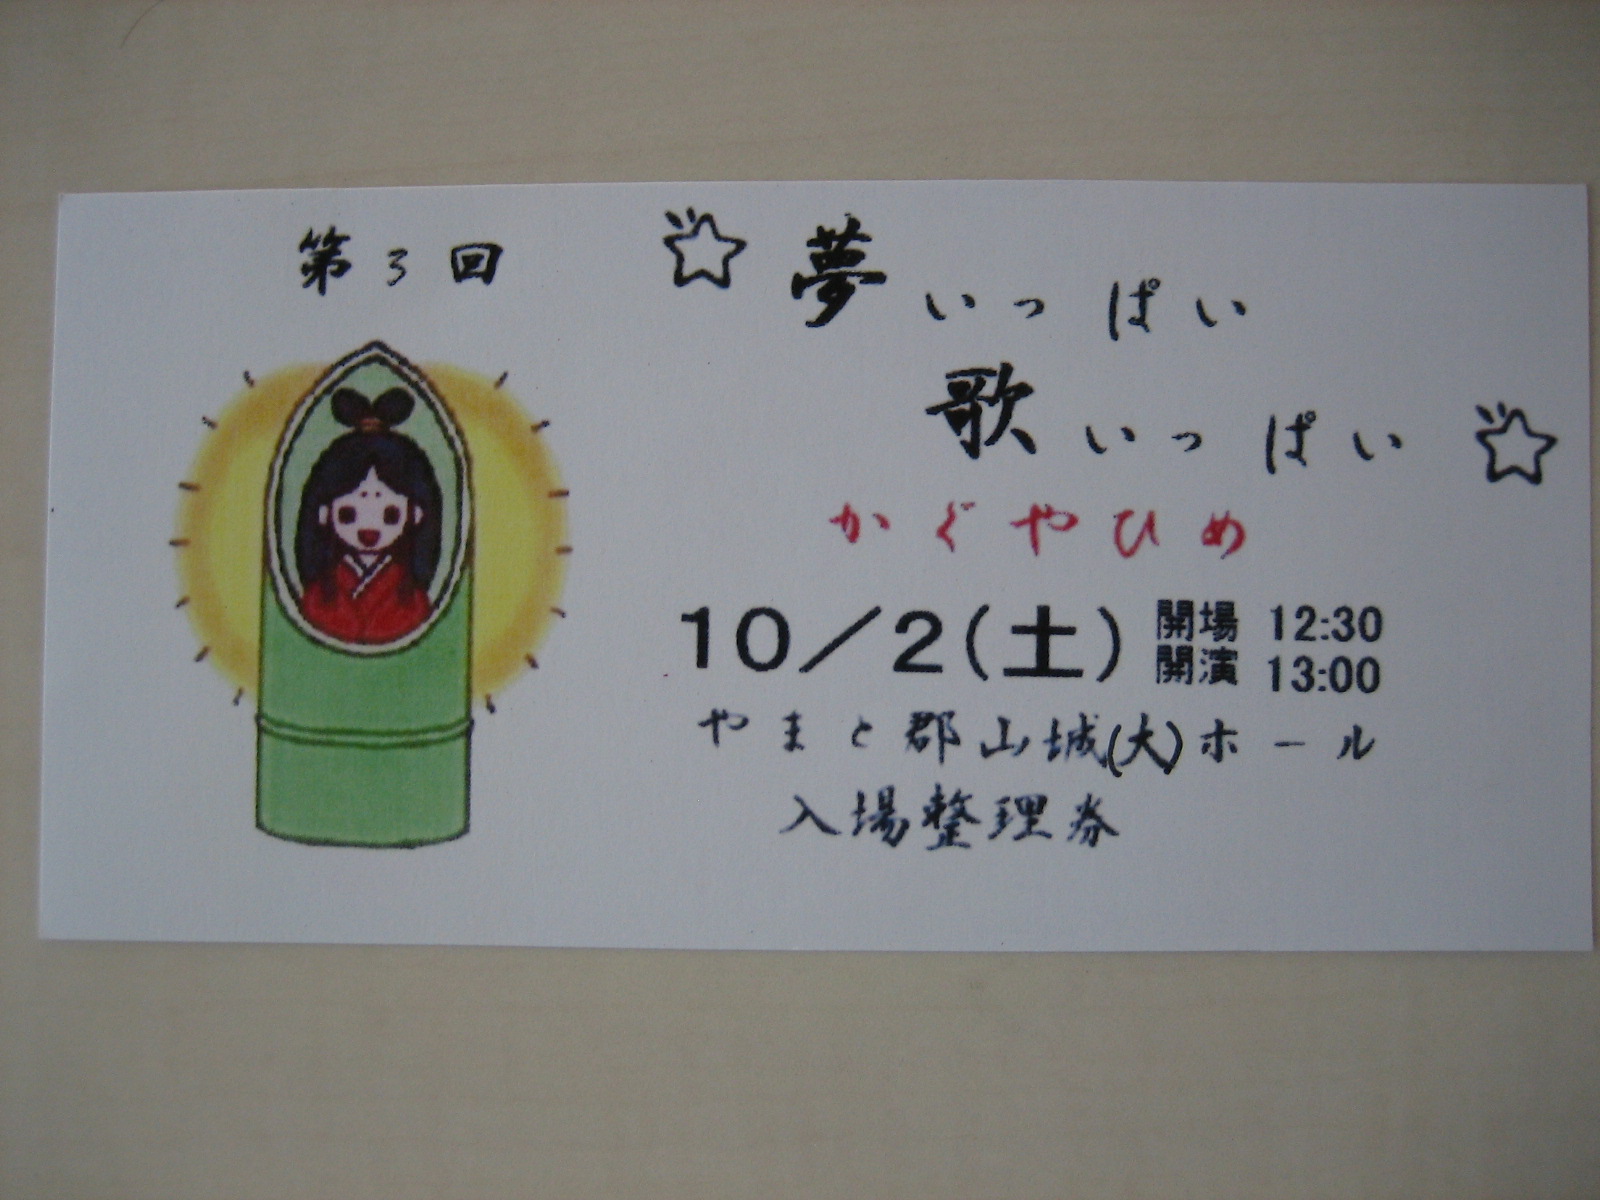 第3回
夢いっぱい
歌いっぱい
かぐやひめ
10／2(土) 開場 12:30
開演 13:00
やまと郡山城(大)ホール
入場整理券